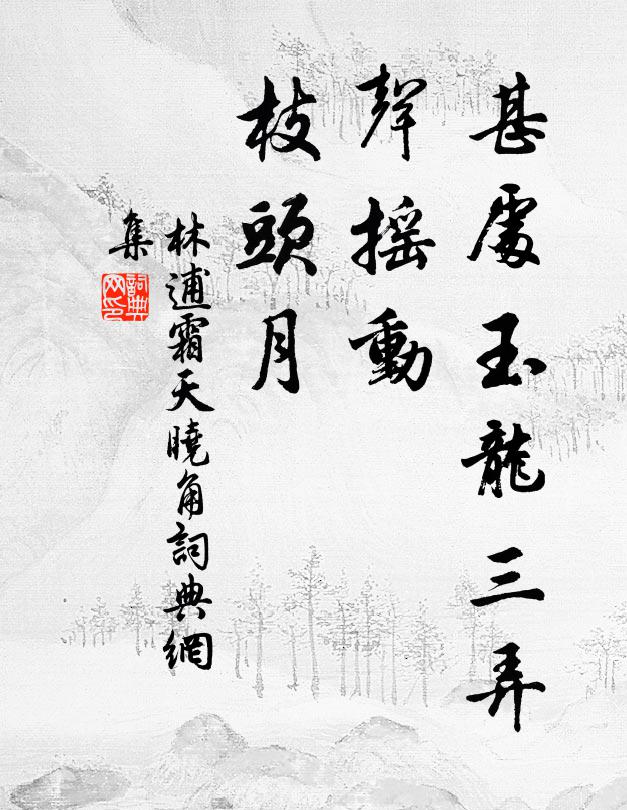 甚處玉龍三弄
聲搖動
枝頭月
林逋霜天曉角詞典網
集
詞典網印